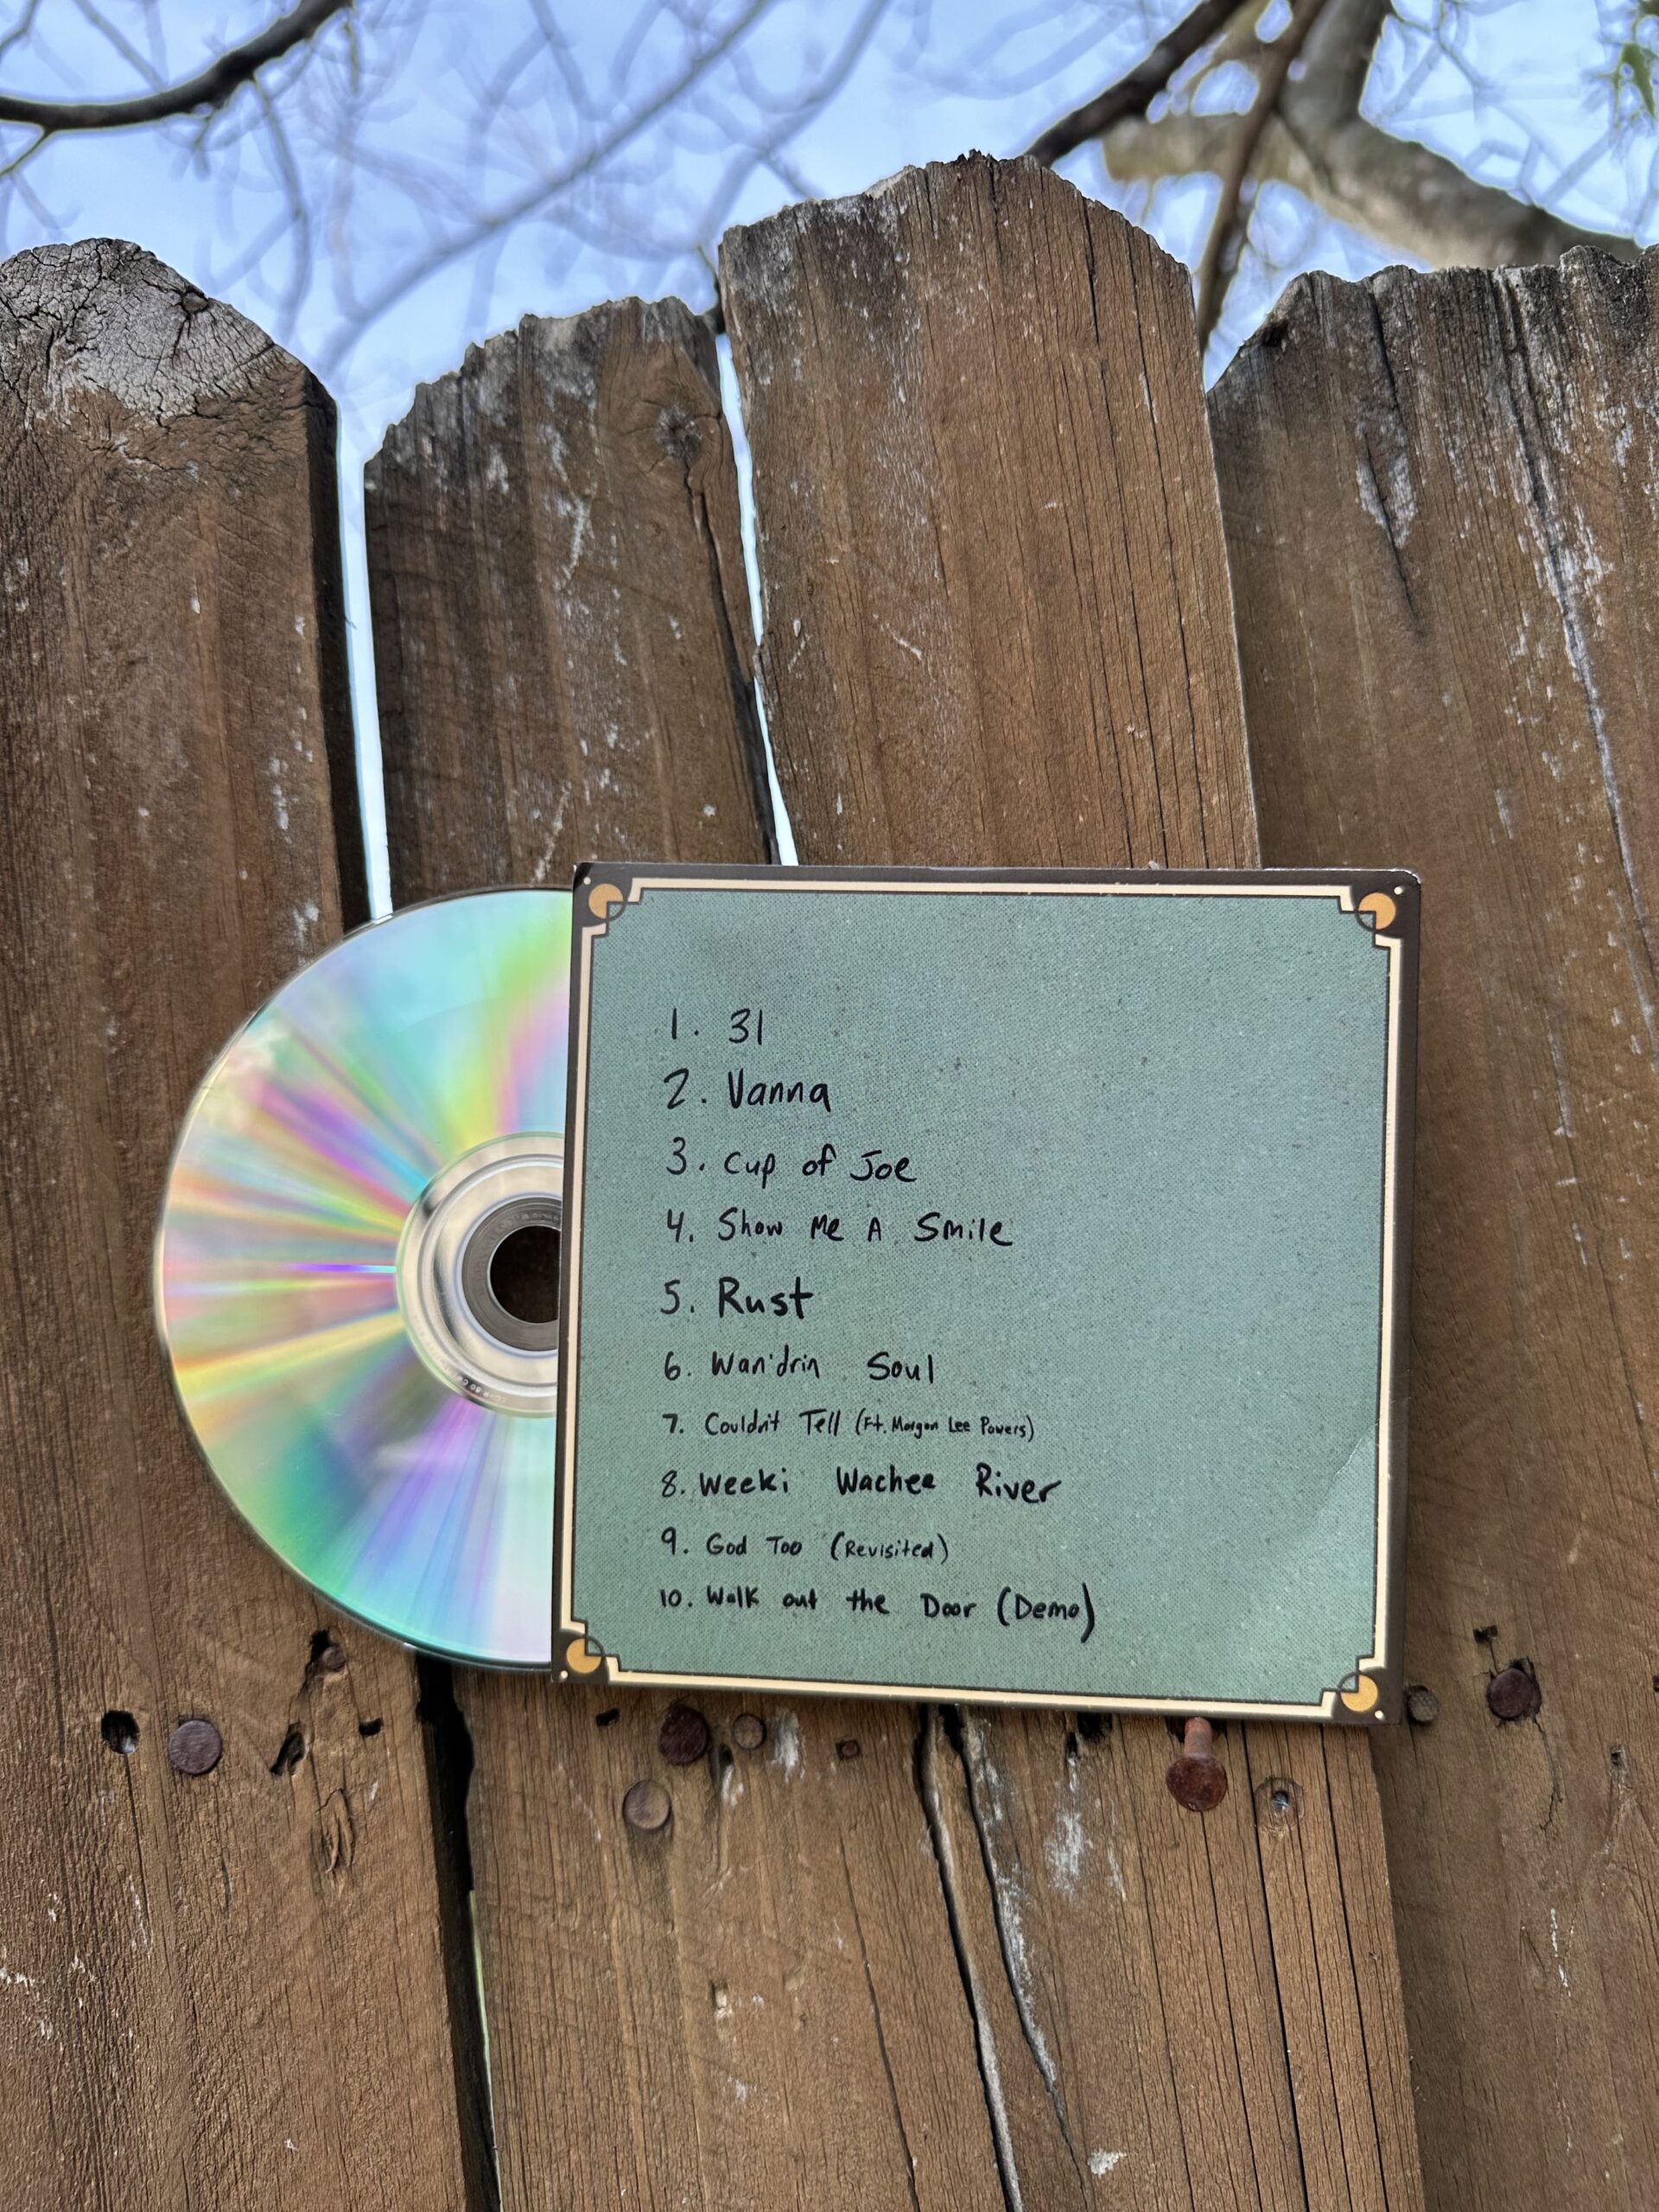 1. 31
2. Vanna
3. Cup of Joe
4. Show Me A Smile
5. Rust
6. Wan'drin Soul
7. Couldn't Tell (Ft. Morgan Lee Powers)
8. Weeki Wachee River
9. God Too (Revisited)
10. Walk out the Door (Demo)